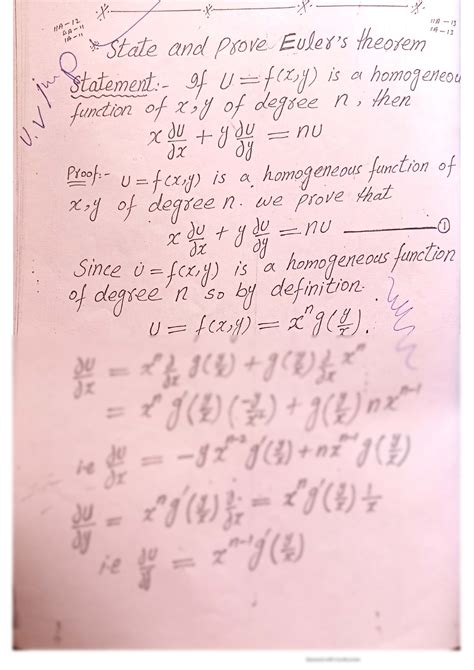 11A-12
AA-11
1A-11
11A-13
1A-13
State and Prove Euler's theorem
Statement:- If U = f(x,y) is a homogeneou
function of x,y of degree n, then
x ∂U/∂x + y ∂U/∂y = nU
Proof:- U = f(x,y) is a homogeneous function of
x,y of degree n. we prove that
x ∂U/∂x + y ∂U/∂y = nU ——— ①
Since U = f(x,y) is a homogeneous function
of degree n so by definition.
U = f(x,y) = xⁿ g(y/x).
∂U/∂x = xⁿ ∂/∂x g(y/x) + g(y/x) ∂/∂x xⁿ
= xⁿ g'(y/x) (-y/x²) + g(y/x) nxⁿ⁻¹
i.e ∂U/∂x = -y xⁿ⁻² g'(y/x) + nxⁿ⁻¹ g(y/x)
∂U/∂y = xⁿ g'(y/x) = xⁿ g'(y/x) 1/x
i.e ∂U/∂y = xⁿ⁻¹ g'(y/x)